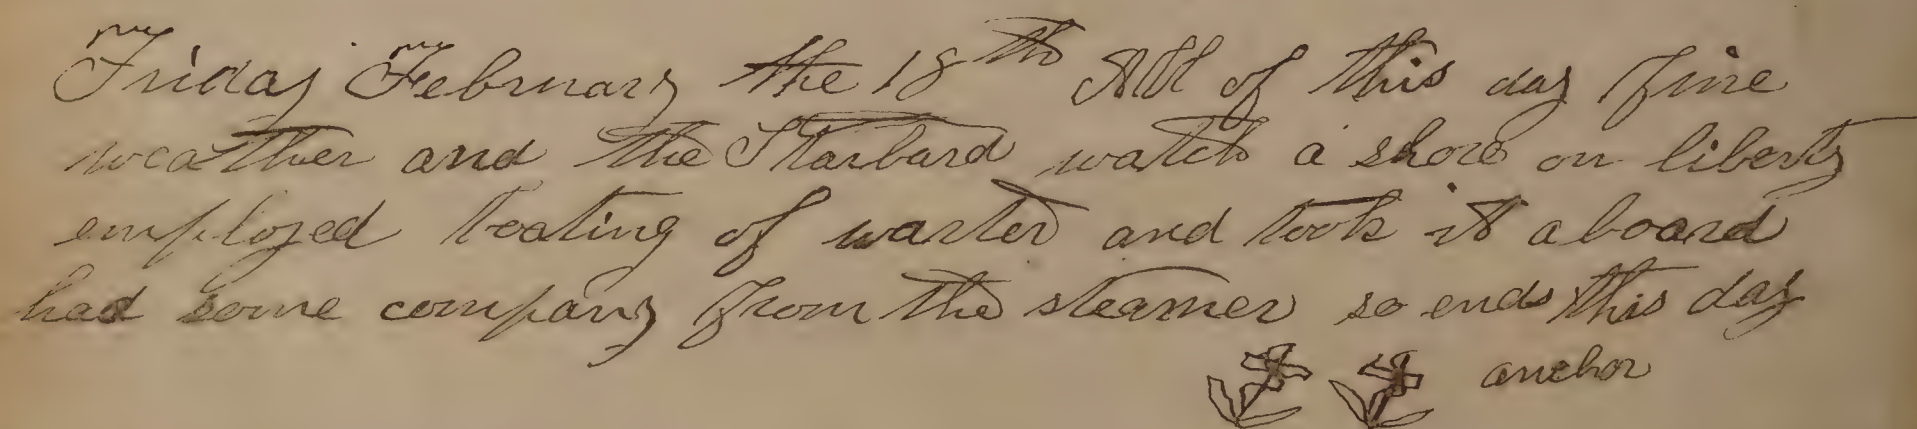 Friday February the 18th All of this day fine
weather and the Starbard watch a shore on liberty
employed boating of warter and took it a board
had some company from the steamer so ends this day
anchor